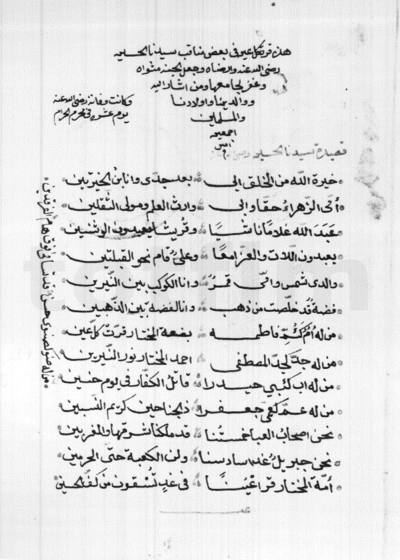 هذه قرة كل عين في بعض مناقب سيدنا الحسين
رضى الله عنه وارضاه وجعل الجنة مثواه
وغفر لجامعها ومن اشار اليه
ووالدينا واولادنا
والمسلمين
اجمعين
امين
وكانت وفاته رضى الله عنه
يوم عشوره في محرم الحرام
قصيدة سيدنا الحسين
خيرة الله من الخلق ابى بعد جدى وانا بن الخيرتين
امى الزهراء حقا وابى وارث العلم ومولى الثقلين
عبد الله غلاما ناشيا وقريش يعبدون الوثنين
يعبدون اللات والعزا معا وعلى قام نحو القبلتين
والدى شمس وامى قمر وانا الكوكب بين النيرين
فضة قد خلصت من ذهب وانا الفضة بين الذهبين
من له ام كمى فاطمه بضعة المختار قرة كل عين
من له جد كجد المصطفى احمد المختار نور النيرين
من له اب كابى حيدرا قاتل الكفار في يوم حنين
من له عم كعمى جعفر ذى الجناحين كريم النسبين
نحن اصحاب العبا خمستنا قد ملكنا شرقها والمغربين
نحن جبريل غدا سادسنا ولنا الكعبة حتى الحرمين
امة المختار قرا عيننا في غد تسقون من كف الحسين